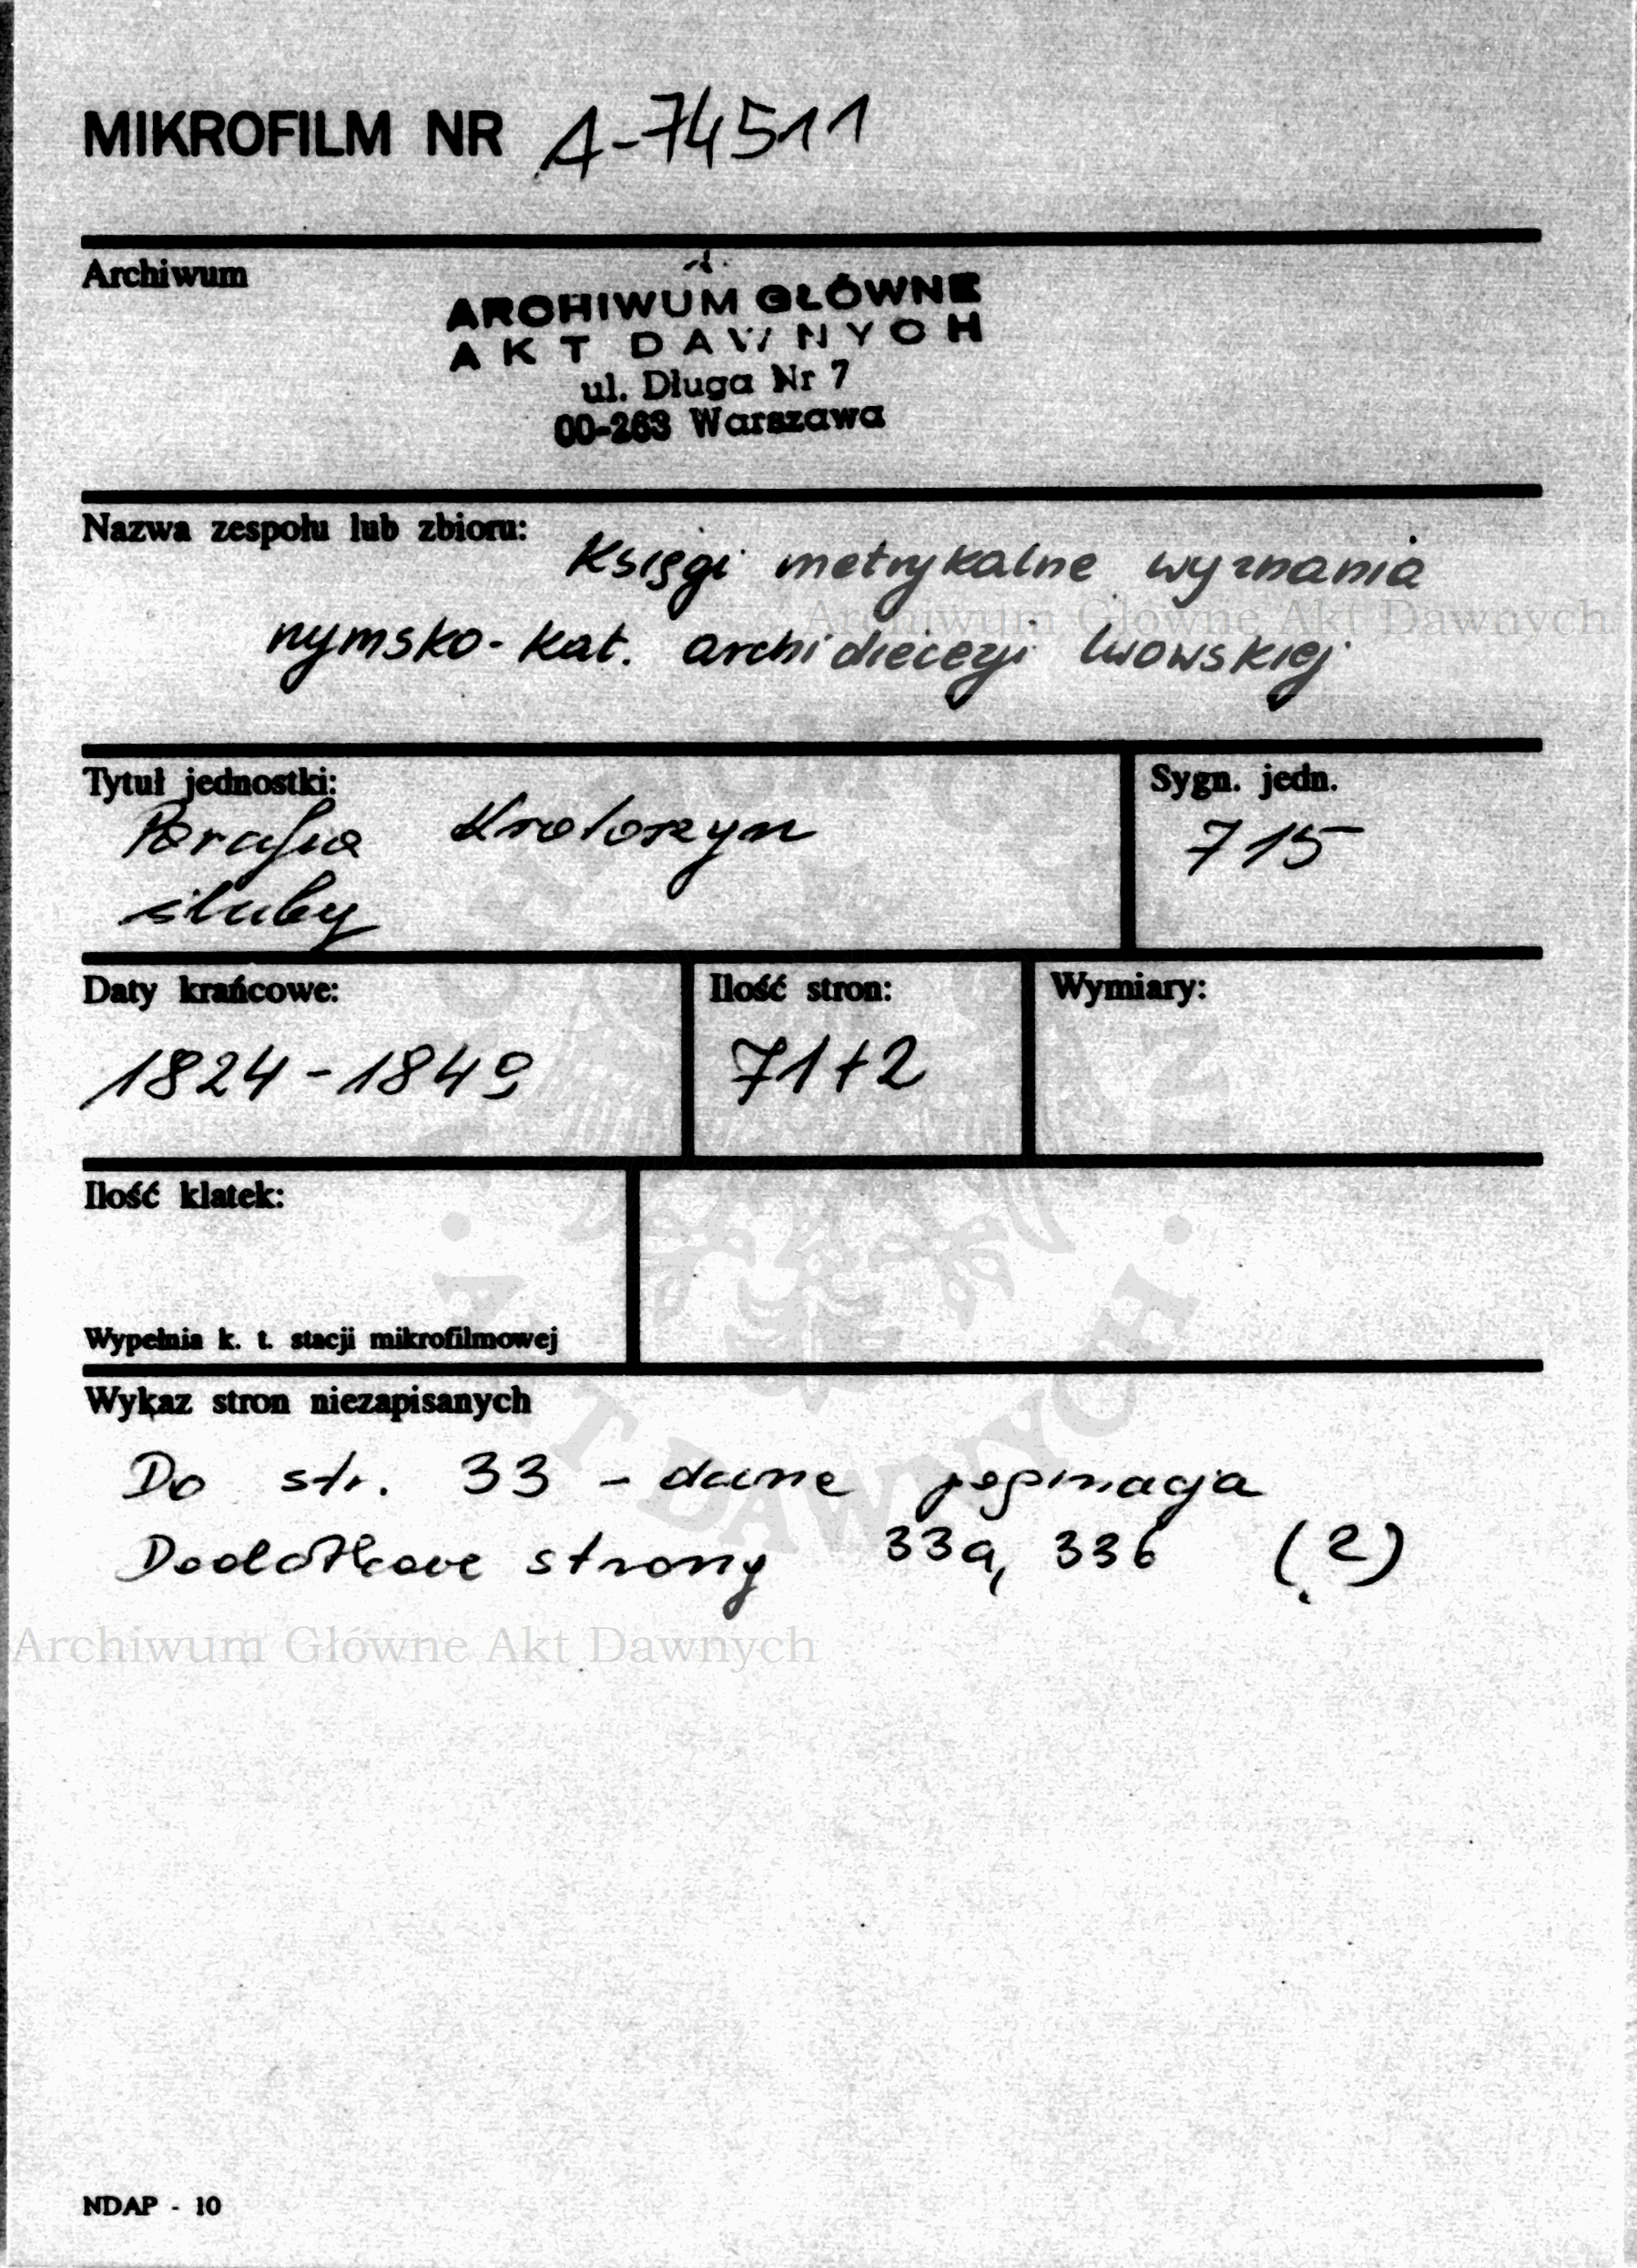 MIKROFILM NR A-74511
Archiwum
ARCHIWUM GŁÓWNE
AKT DAWNYCH
ul. Długa Nr 7
00-263 Warszawa
Nazwa zespołu lub zbioru: Księgi metrykalne wyznania
Archiwum Główne Akt Dawnych
rzymsko-kat. archidiecezji lwowskiej
Tytuł jednostki:
Parafia Krotoszyn
śluby
Sygn. jedn.
715
Daty krańcowe:
1824-1849
Ilość stron:
71+2
Wymiary:
Ilość klatek:
Wypełnia k. t. stacji mikrofilmowej
Wykaz stron niezapisanych
Do str. 33 - dawne paginacja
Dodatkowe strony 33a, 33b (2)
Archiwum Główne Akt Dawnych
AKT DAWNYCH
NDAP - 10